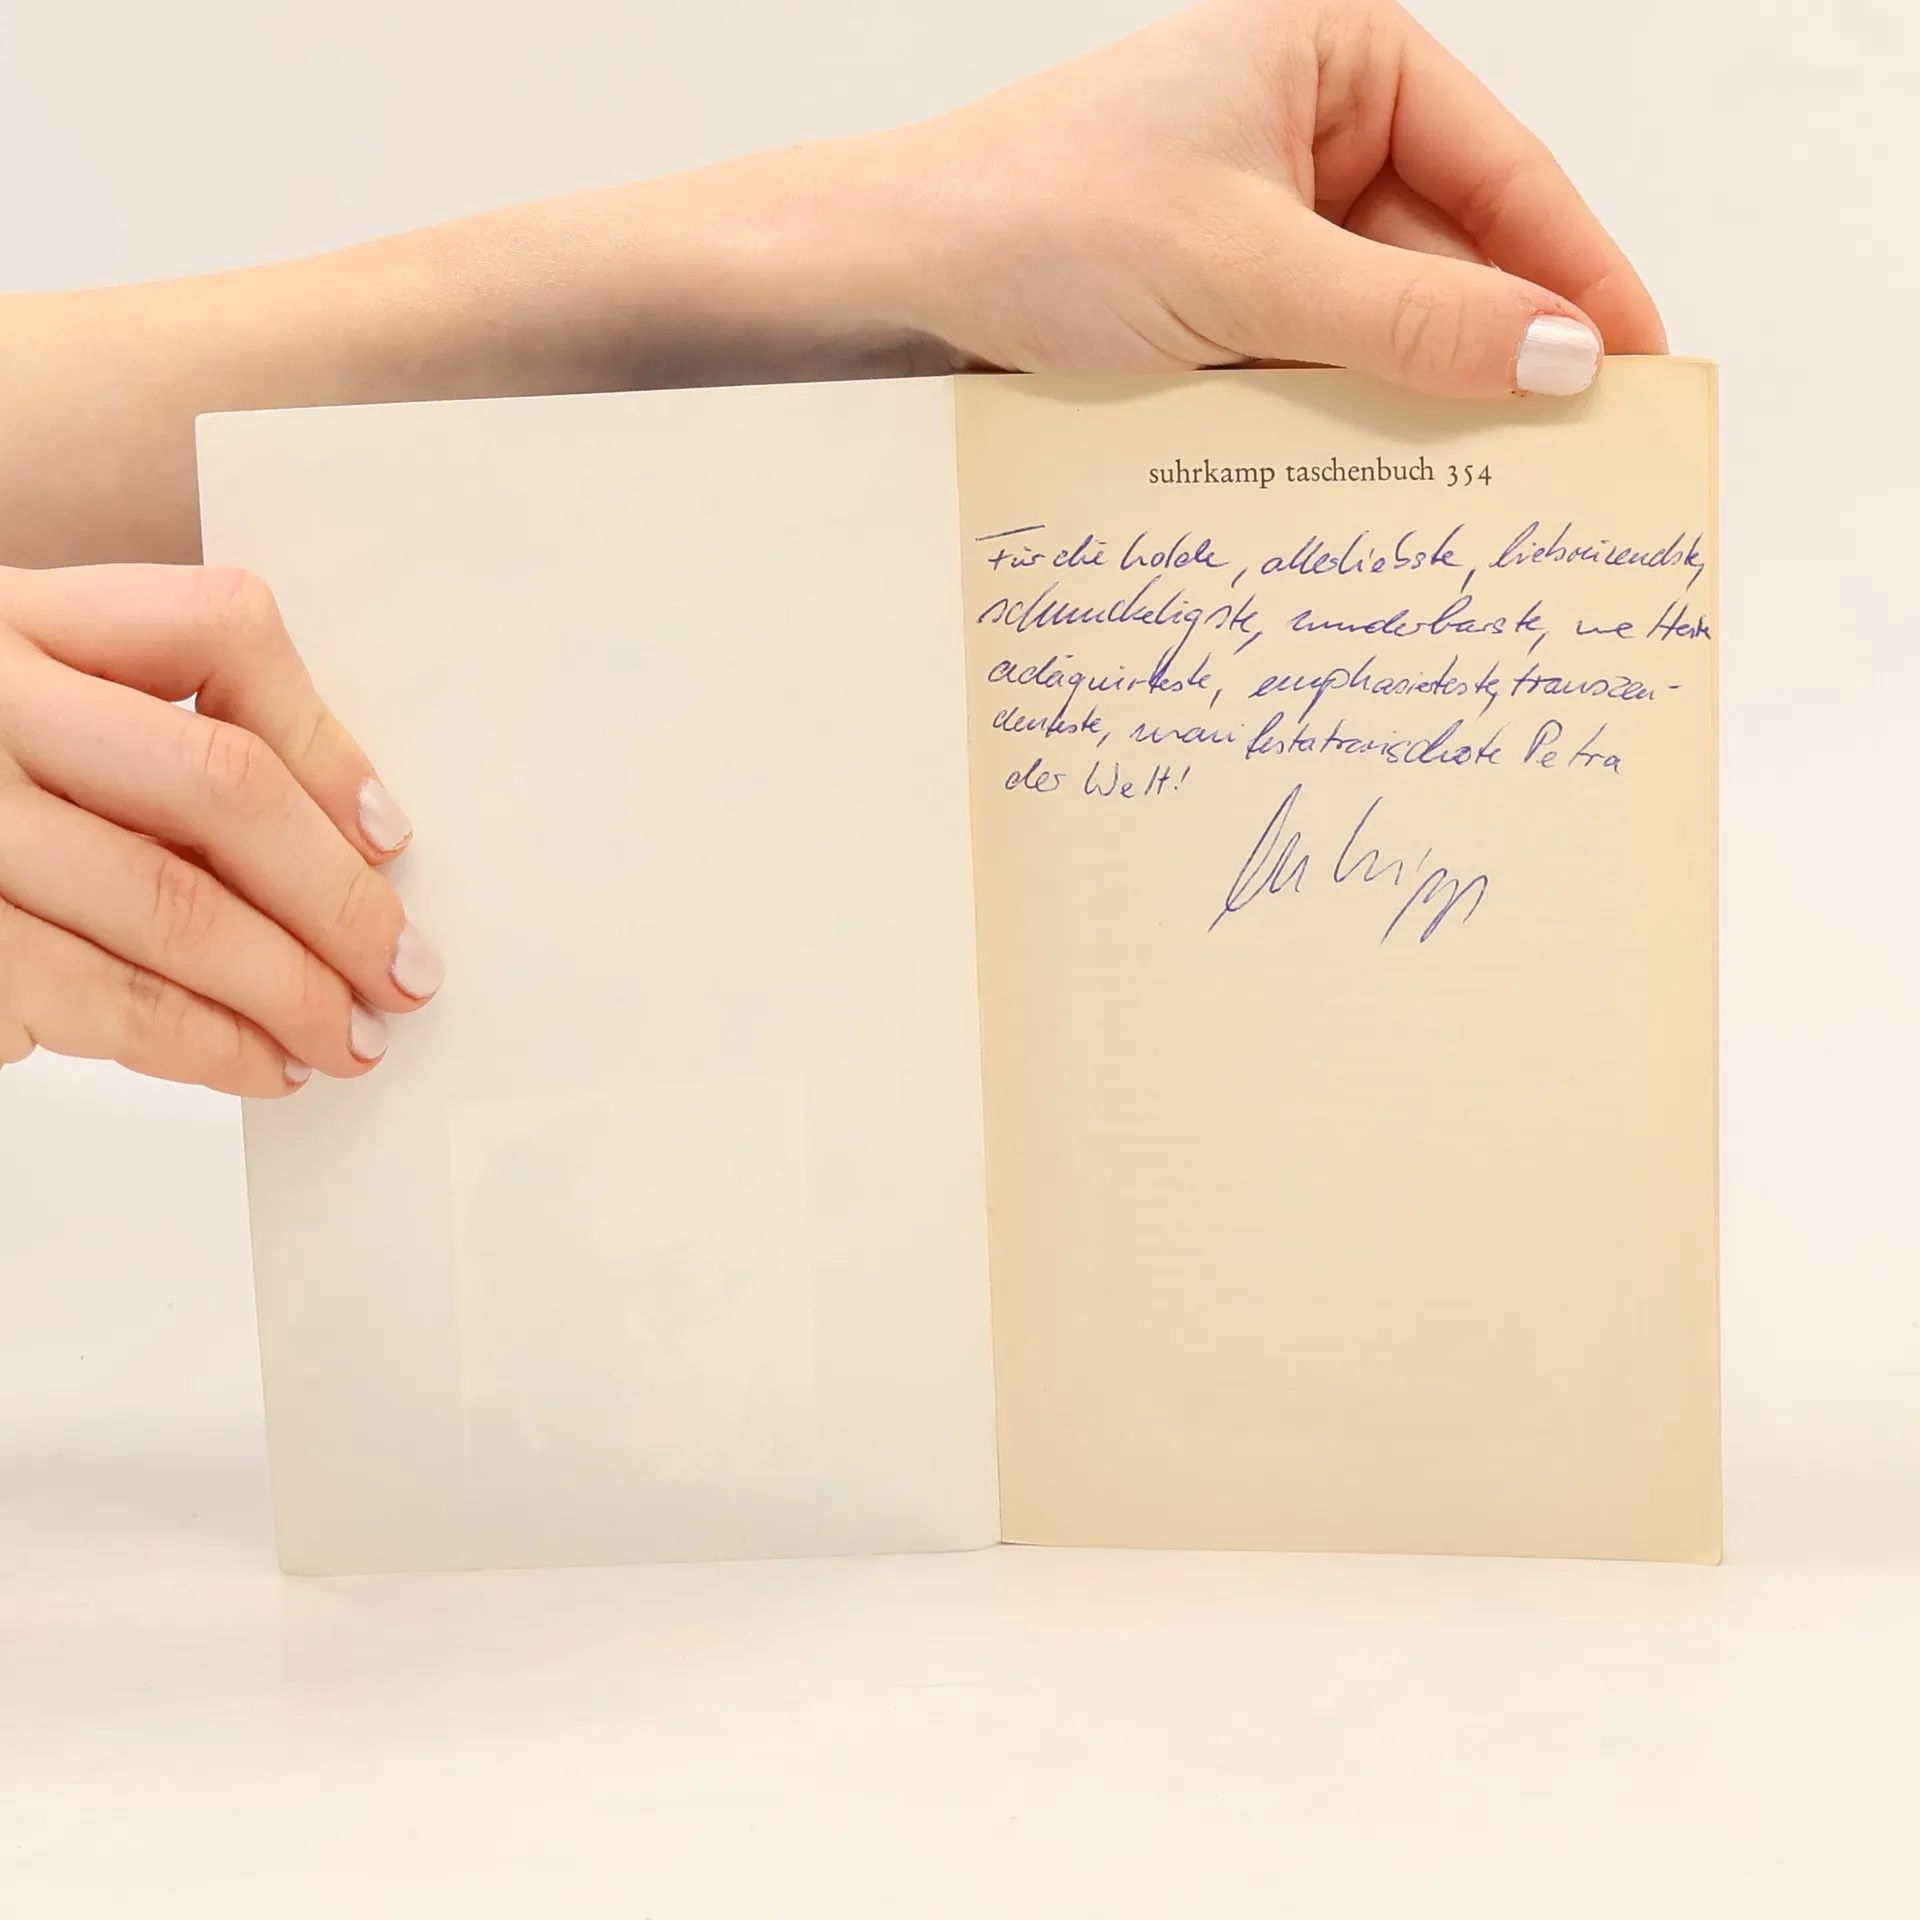 suhrkamp taschenbuch 354
Für die holde, allerliebste, liebreizendste,
schnuckeligste, wunderbarste,
adäquirteste, emphasierteste, transzen-
denteste, Petra
der Welt!